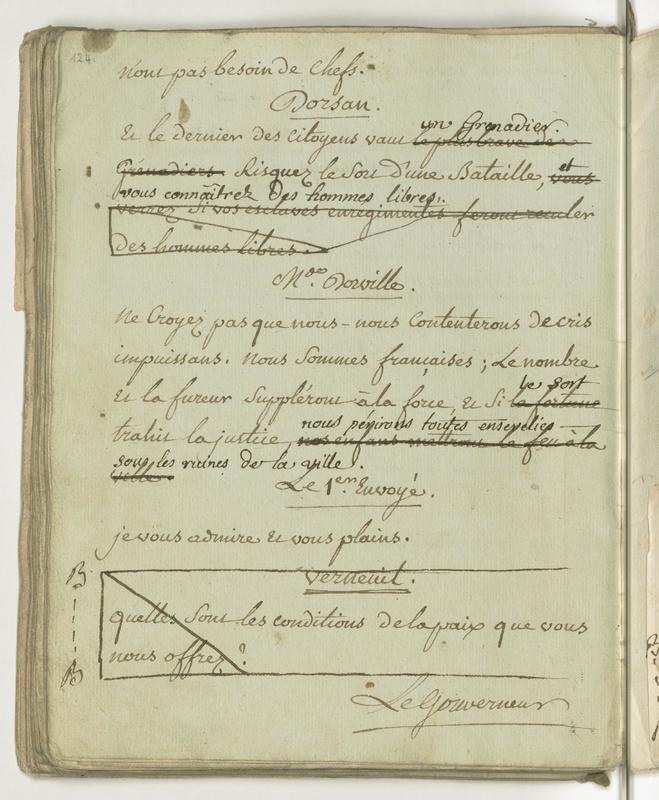 124.
n'ont pas besoin de Chefs.
Dorsan.
un Grenadier.
Et le dernier des Citoyens vaut le plus brave des
Grenadiers. Risquez le Sort d'une Bataille, et vous
vous connaîtrez Des hommes libres.
verrez Si vos esclaves enregimentés feront reculer
des hommes libres.
Mde. Dorville.
Ne Croyez pas que nous-nous Contenterons de cris
impuissans. Nous Sommes françaises ; Le nombre
le sort
Et la fureur Suppléront à la force, Et Si la fortune
nous périrons toutes ensevelies
trahit la justice, nos enfans mettront le feu à la
sous les ruines de la ville.
ville.
Le 1er Envoyé.
je vous admire Et vous plains.
B
Verneuil.
quelles Sont les conditions de la paix que vous
nous offrez ?
B
Le Gouverneur